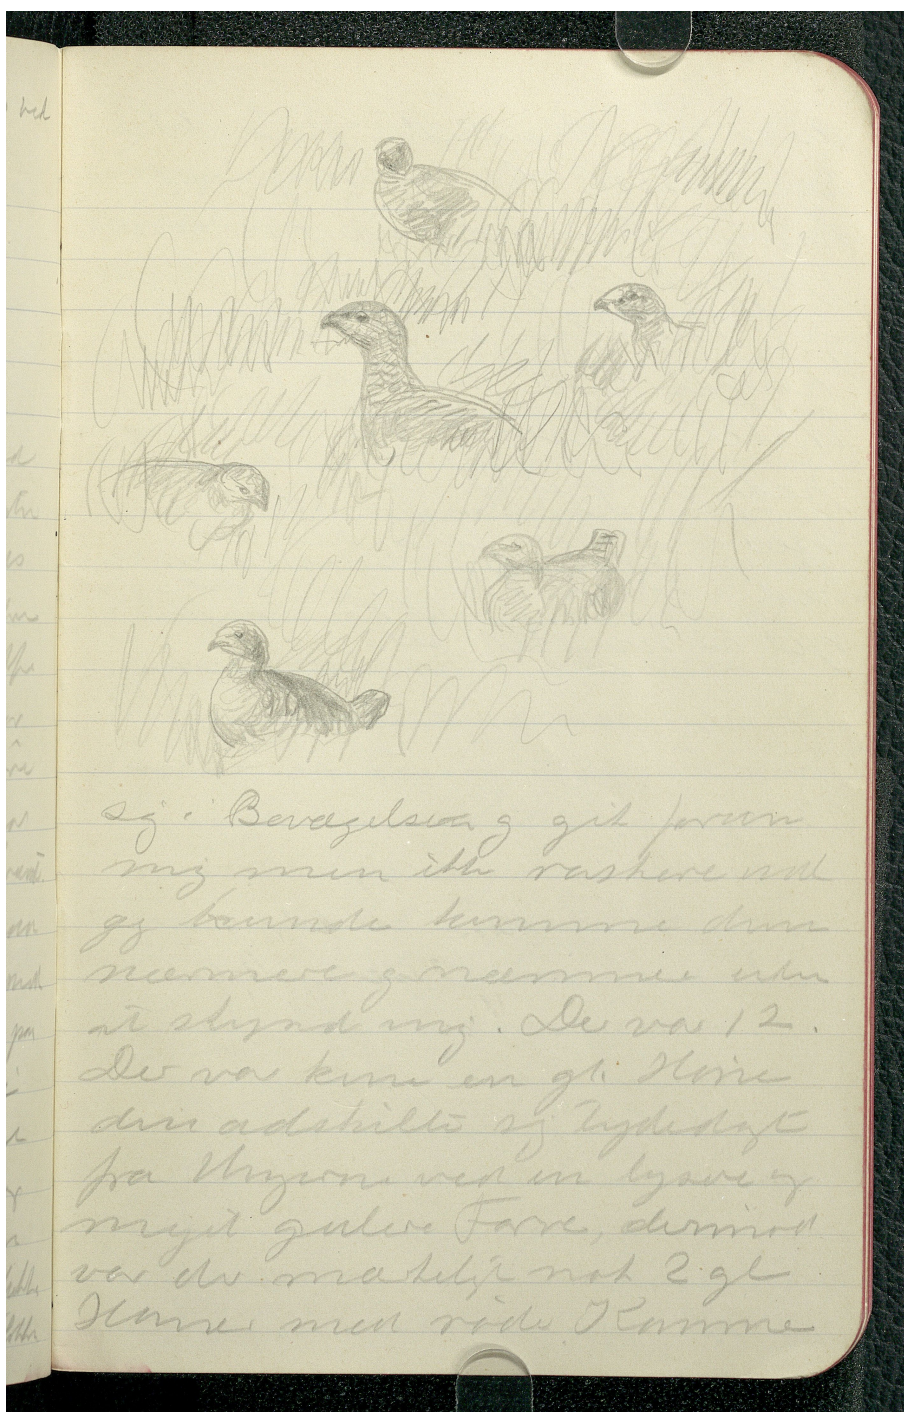 ved
sig i Bevægelse og gik foran
mig men ikke raskere end
jeg kunde komme dem
nærmere og nærmere uden
at skynde mig. Der var 12.
Der var kun en gl. Høne
den adskilte sig tydeligt
fra Ungerne ved en lysere og
meget gulere Farve, derimod
var der mærkeligt nok 2 gl
Haner med røde Kamme